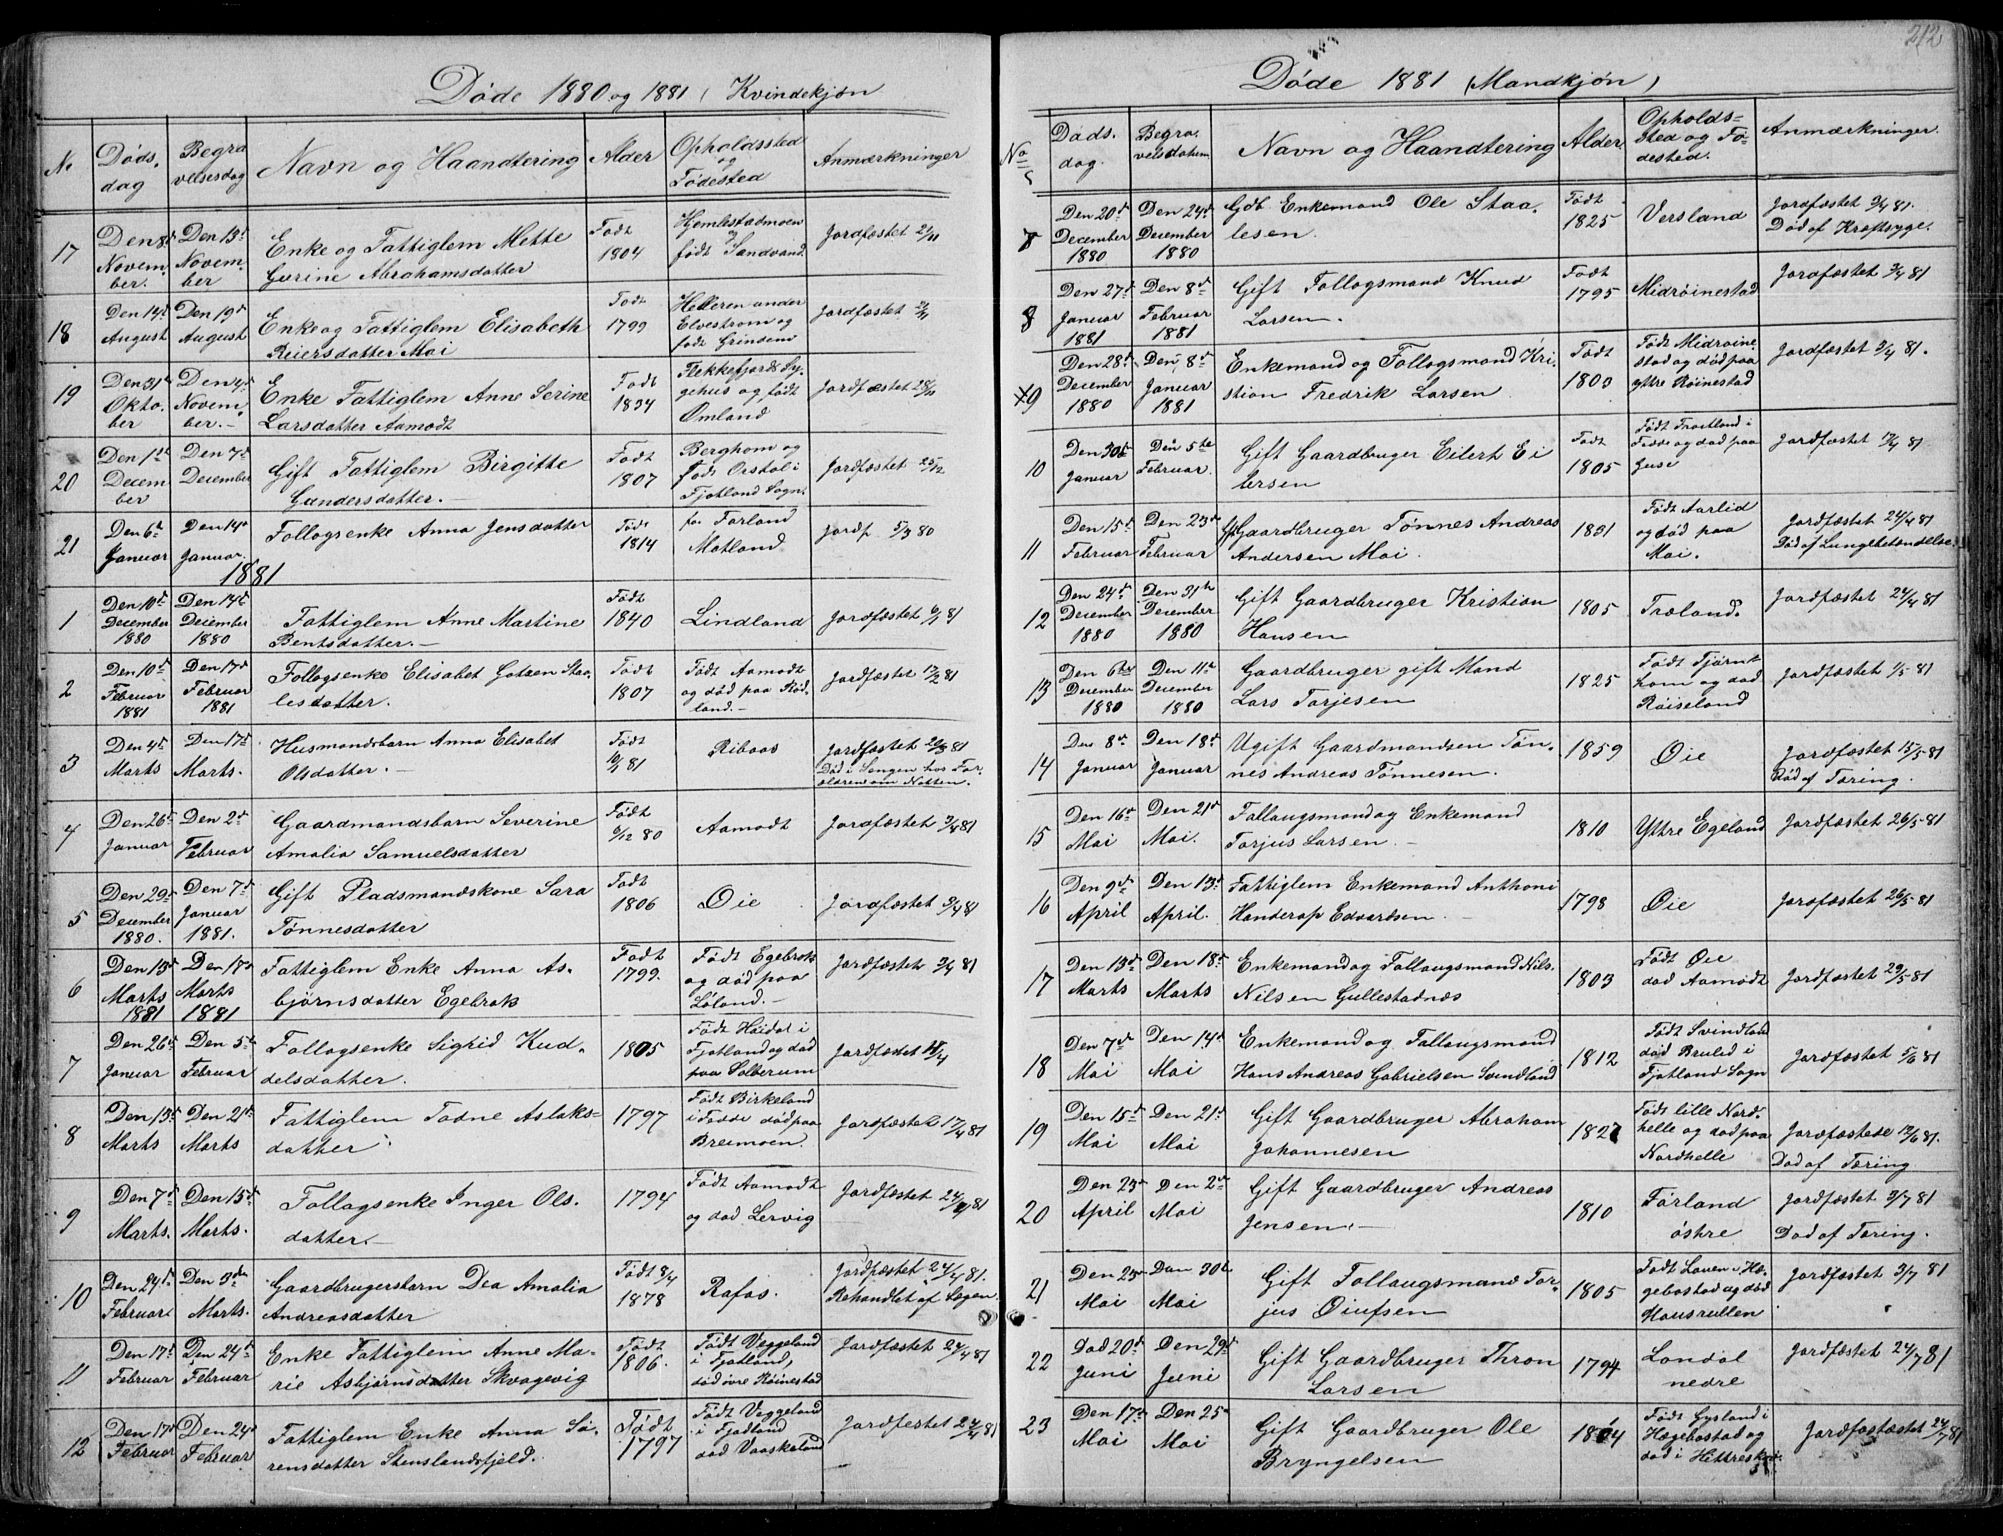 Døde 1880 og 1881 (Kvindekjøn
No
Døds-
dag
Begra
velsesdag
Navn og Haandtering
Alder
Opholdssted
og
Fødested
Anmærkninger
17
Den 8de
Novem-
ber.
Den 13de
Novem-
ber
Enke og Fattiglem Mette
Gurine Abrahamsdatter
Født
1804
Hjemlestadmoen
og
født Sandvand.
Jordfæstet 21/11
18
Den 14de
August
Den 19de
August
Enke og Fattiglem Elisabeth
Reiersdatter Moi
Født
1799
Helleren under
Elvestrøm og
født Grindem
Jordfæstet
19
Den 31te
Okto-
ber
Den 4de
Novem-
ber.-
Enke Fattiglem Anne Serine
Larsdatter Aamodt
Født
1834
Flekkefjords Sy-
gehus og født
Omland
Jordfæstet 28/11
20
Den 1ste
Decem-
ber
Den 7de
December
Gift Fattiglem Birgitte
Gundersdatter.-
Født
1807
Berghom og
født Orstol i
Fjotland Sogn.
Jordfæstet 25/12
21
Den 6te
Januar
Den 14de
Januar.
Follogsenke Anna Jensdatter
Født
1814
Forland
Motland
Jordf 5/3 80
1881
1
Den 10de
December
1880
Den 14de
December
1880
Fattiglem Anne Martine
Bentsdatter.-
Født
1840
Lindland
Jordfæstet 6/1 81
2
Den 10de
Februar
1881
Den 17de
Februar
1881
Follogsenke Elisabet Gotzen Staa-
lesdatter.
Født
1807
Født Aamodt
og død paa Rød-
land.-
Jordfæstet 17/2 81
3
Den 4de
Marts
Den 17de
Marts.
Husmandsbarn Anna Elisabet
Olsdatter.-
Født
10/1 81
Riboas
Jordfæstet 20/3 81
Død i Sengen hos For-
ældrene om Natten.
4
Den 26de
Januar
Den 2de
Februar
Gaardmandsbarn Severine
Amalia Samuelsdatter
Født
6/12 80
Aamodt
Jordfæstet 3/4 81
5
Den 29de
December
1880.
Den 7de
Januar
1881.
Gift Pladsmandskone Sara
Tønnesdatter
Født
1806
Øie
Jordfæstet 3/4 81
6
Den 13de
Marts
1881
Den 17de
Marts
1881
Fattiglem Enke Anna As-
bjørnsdatter Egebrok
Født
1799.
Født Egebrok
og død paa
Løland.-
Jordfæstet 3/4 81
7
Den 26de
Januar
Den 5te
Februar
Follogsenke Sigrid Kud-
delsdatter.
1805
Født Høidal i
Fjotland og død
paa Solberum
Jordfæstet 17/4
8
Den 13de
Marts
Den 21de
Marts
Fattiglem Todne Aslaks-
datter
1797
Født Birkeland
i Fødde død paa
Breimoen.
Jordfæstet 17/4 81
9
Den 7de
Marts.
Den 15de
Marts.
Follogsenke Inger Ols-
datter.-
1794
Født Aamodt
og død Lervig
Jordfæstet 24/4 81
10
Den 24de
Februar
Den 3die
Marts.
Gaardbrugersbarn Dea Amalia
Andreasdatter
Født 8/4
1878
Rafos.
Jordfæstet 24/4 81.
Behandlet af Lægen
11
Den 17de
Februar
Den 24de
Februar
Enke Fattiglem Anne Ma-
rie Asbjørnsdatter Skvagevig
Født
1806.
Født Veggeland
i Fjotland,
død øvre Røinestad
Jordfæstet 24/4 81
12
Den 17de
Februar
Den 24de
Februar
Fattiglem Enke Anna Sø-
rensdatter Stenslandsfjeld.
Født
1797
Født Veggeland
i Fjotland
død Vaaskeland
Jordfæstet 24/4 81
212
Døde 1881 (Mandkjøn)
No
Døds-
dag.
Begra-
velsesdatum
Navn og Haandtering
Alder
Opholds-
sted og Fø-
dested.
Anmærkninger.
7
Den 20de
December
1880
Den 24de
December
1880
Gdb Enkemand Ole Staa-
lesen
Født
1825
Versland
Jordfæstet 3/4 81.
Død af Kræftsyge.
8
Den 27de
Januar
1881
Den 8de
Februar
1881
Gift Follogsmand Knud
Larsen.
Født
1795
Midrøinestad
Jordfæstet 3/4 81
9
Den 28de
December
1880
Den 8de
Januar
1881
Enkemand og Follogsmand Kri-
stian Fredrik Larsen
Født
1803
Født Midrøine-
stad og død paa
ytre Røinestad
Jordfæstet 3/4 81.
10
Den 30te
Januar
Den 5te
Februar.
Gift Gaardbruger Eilert Ei
lersen
Født
1805
Født Froitland i
Fødde og død paa
Guse
Jordfæstet 17/4 81
11
Den 15de
Februar
Den 23de
Februar
Gaardbruger Tønnes Andreas
Andersen Moi.
1831
Født Aarlid
og død paa
Moi.
Jordfæstet 24/4 81
Død af Lungebetændelse.
12
Den 24de
December
1880
Den 31te
December
1880
Gift Gaardbruger Kristian
Hansen
1805
Træland.
Jordfæstet 24/4 81
13
Den 6te
December
1880
Den 11te
December
1880
Gaardbruger gift Mand
Lars Torjesen
1825
Født Tjørn-
hom og død
Røiseland
Jordfæstet 1/5 81
14
Den 8de
Januar
Den 18de
Januar
Ugift Gaardmandsøn Tøn-
nes Andreas Tønnesen.
1859
Øie
Jordfæstet 15/5 81
Død af Tæring.
15
Den 16de
Mai
Den 21de
Mai.
Follaugsmand og Enkemand
Torjus Larsen.-
1810
Yttre Egeland
Jordfæstet 26/5 81
16
Den 9de
April
Den 13de
April.
Fattiglem Enkemand Anthoni
Handerop Edvardsen.
1798
Øie
Jordfæstet 26/5 81
17
Den 13de
Marts
Den 18de
Marts
Enkemand og Follaugsmand Nils
Nilsen Gullestadnæs
1803
Født Øie
død Aamodt
Jordfæstet 29/5 81
18
Den 7de
Mai
Den 14de
Mai
Enkemand og Follaugsmand
Hans Andreas Gabrielsen Svindland
1812
Født Svindland
død Brulid i
Fjotland Sogn
Jordfæstet 5/6 81
19
Den 15de
Mai
Den 21de
Mai
Gift Gaardbruger Abraham
Johannesen
1827
Født lille Nord-
helle og død paa
Nordhelle
Jordfæstede 12/6 81.
Død af Tæring
20
Den 23de
April
Den 2den
Mai
Gift Gaardbruger Andreas
Jensen.-
1810
Førland
østre
Jordfæstet 3/7 81
Død af Tæring.
21
Den 23de
Mai
Den 30te
Mai
Gift Follaugsmand Tor-
jus Øiufsen
1805
Født Lauen i Hæ-
gebostad og død
Hausrullen
Jordfæstet 3/7 81
22
Død 20de
Juni
Den 29de
Juni
Gift Gaardbruger Thron
Larsen
1794
Londal
nedre
Jordfæstet 24/7 81
23
Den 17de
Mai
Den 25de
Mai
Gift Gaardbruger Ole
Bryngelsen
1804
Født Gysland i
Hægebostad og
død i Hitterskov
Jordfæstet 24/7 81